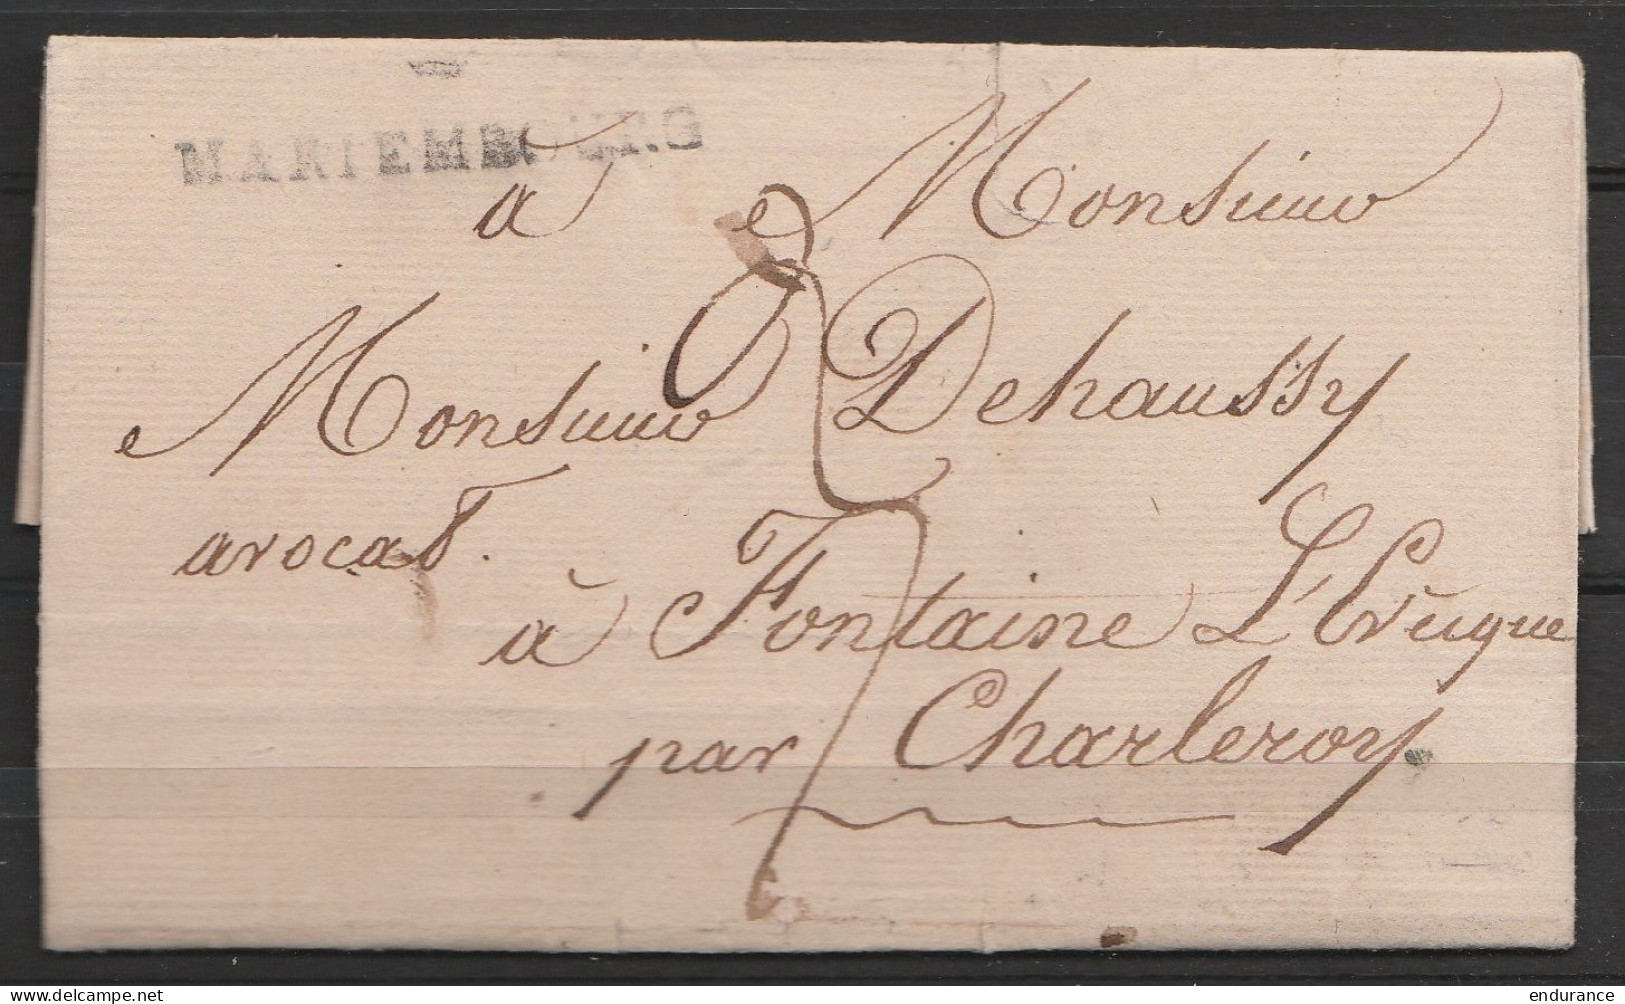 MARIEMBOURG
a Monsieur
Monsieur Dehaussy
avocat.
à Fontaine L'Evêque
par Charleroy.
delcampe.net
endurance